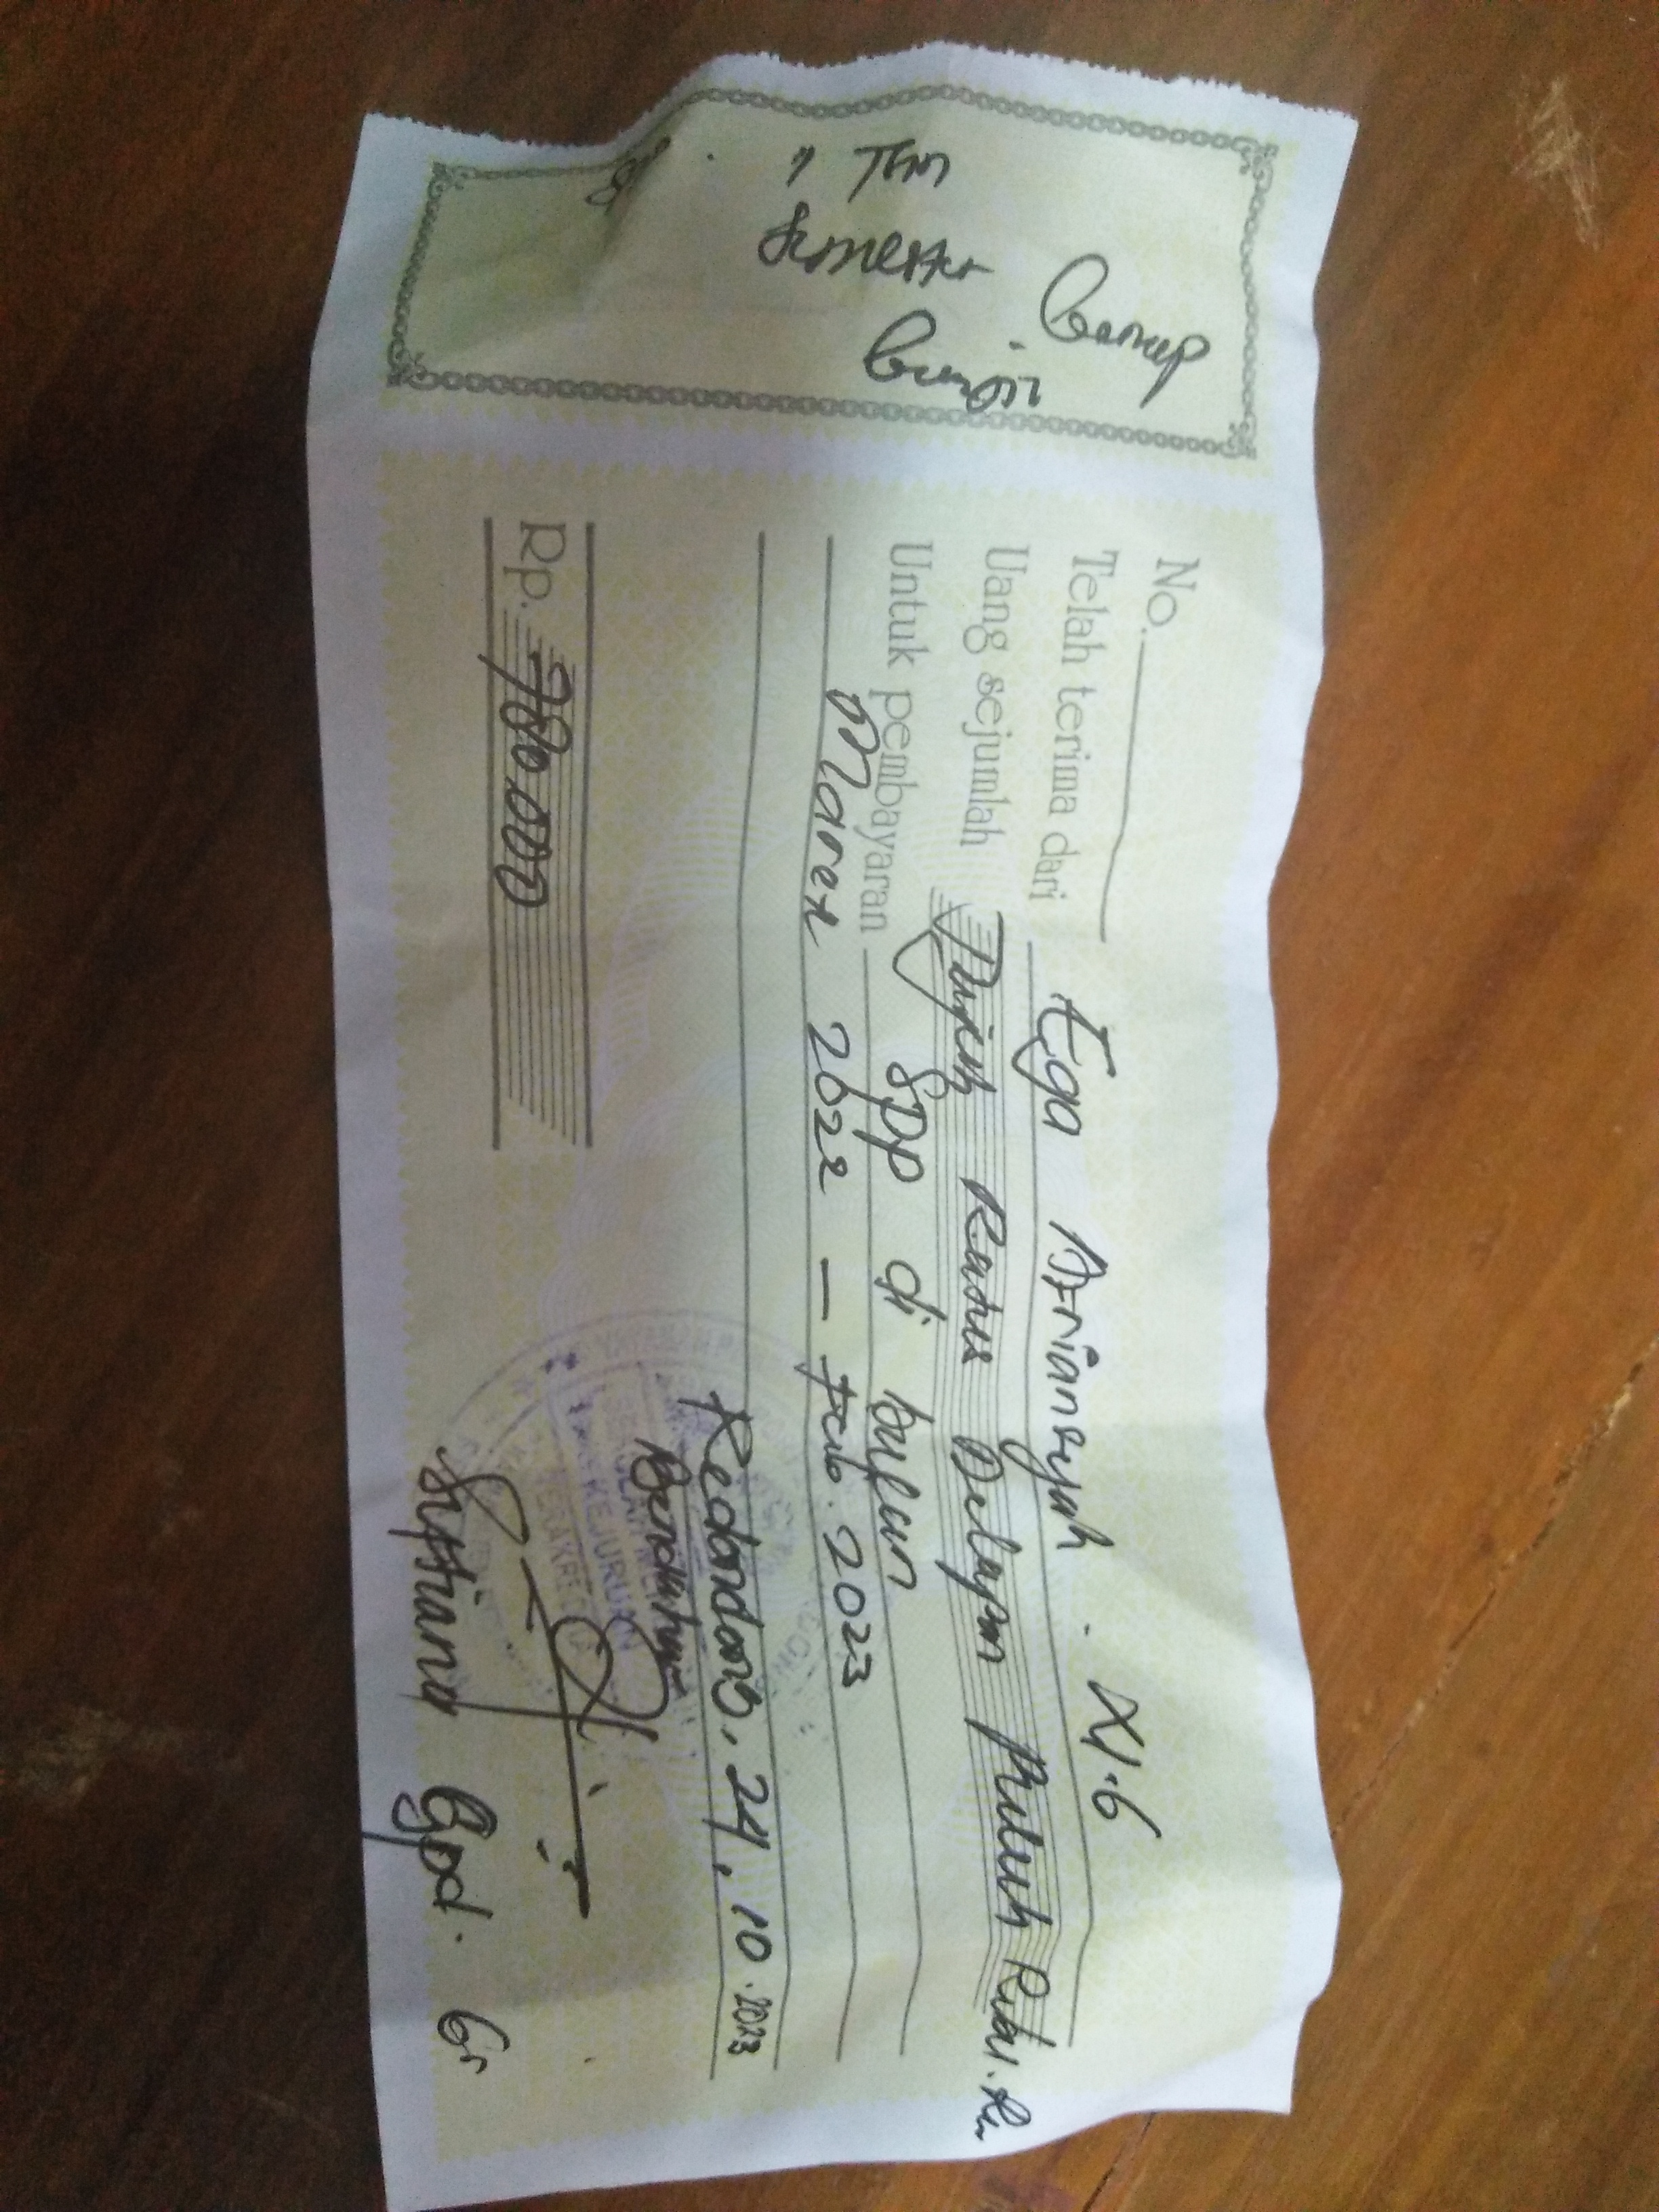 Genap
Ganjil
Semester
TKM "
No.
Telah terima dari Ega Afriansyah. XI.6
Uang sejumlah Tujuh Ratus Delapan Puluh Ribu. Ru
Untuk pembayaran SPP di bulan
Maret 2022 - Feb. 2023
Kedondong, 24, 10. 2023
Bendahara
Rp. 780.000
KEJURUAN
Septiana Spd. Gr